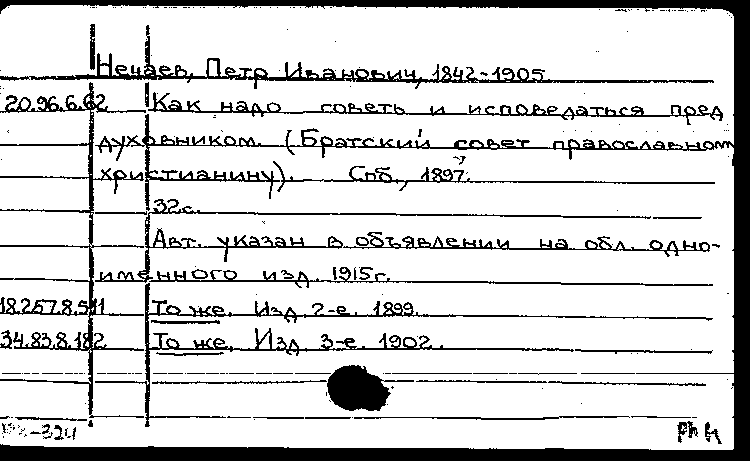 Нечаев, Петр Иванович, 1842-1905
20.96.6.62 Как надо говеть и исповедаться пред
духовником. (Братский совет православном
христианину). Спб., 1897.
32с.
Авт. указан в объявлении на обл. одно-
именного изд. 1915г.
18.257.8.511 То же. Изд. 2-е. 1899.
34.83.8.182 То же. Изд. 3-е. 1902.